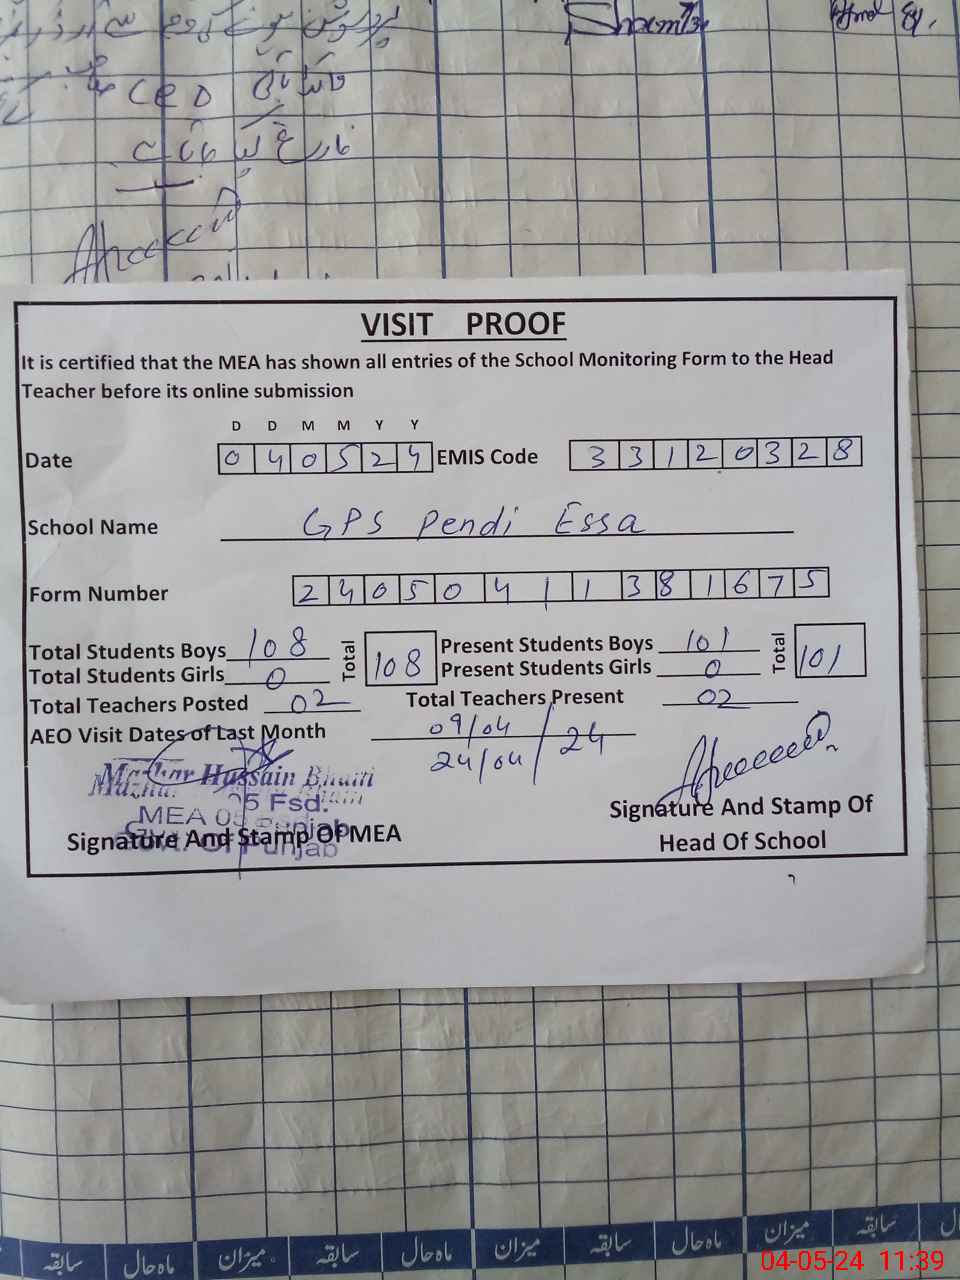 CRD
VISIT PROOF
It is certified that the MEA has shown all entries of the School Monitoring Form to the Head
Teacher before its online submission
D D M M Y Y
Date 040524 EMIS Code 33120328
School Name GPS Pendi Essa
Form Number 24050411381675
Total Students Boys 108 Total 108 Present Students Boys 101 Total 101
Total Students Girls 0 Present Students Girls 0
Total Teachers Posted 02 Total Teachers Present 02
AEO Visit Dates of Last Month 09/04 24/04 /24
Mazhar Hussain Bhatti
MEA 05 Fsd.
Govt. Of Punjab
Signature And Stamp Of MEA
Signature And Stamp Of
Head Of School
سابقہ ماہ حال میزان سابقہ ماہ حال میزان سابقہ ماہ حال میزان سابقہ
04-05-24 11:39